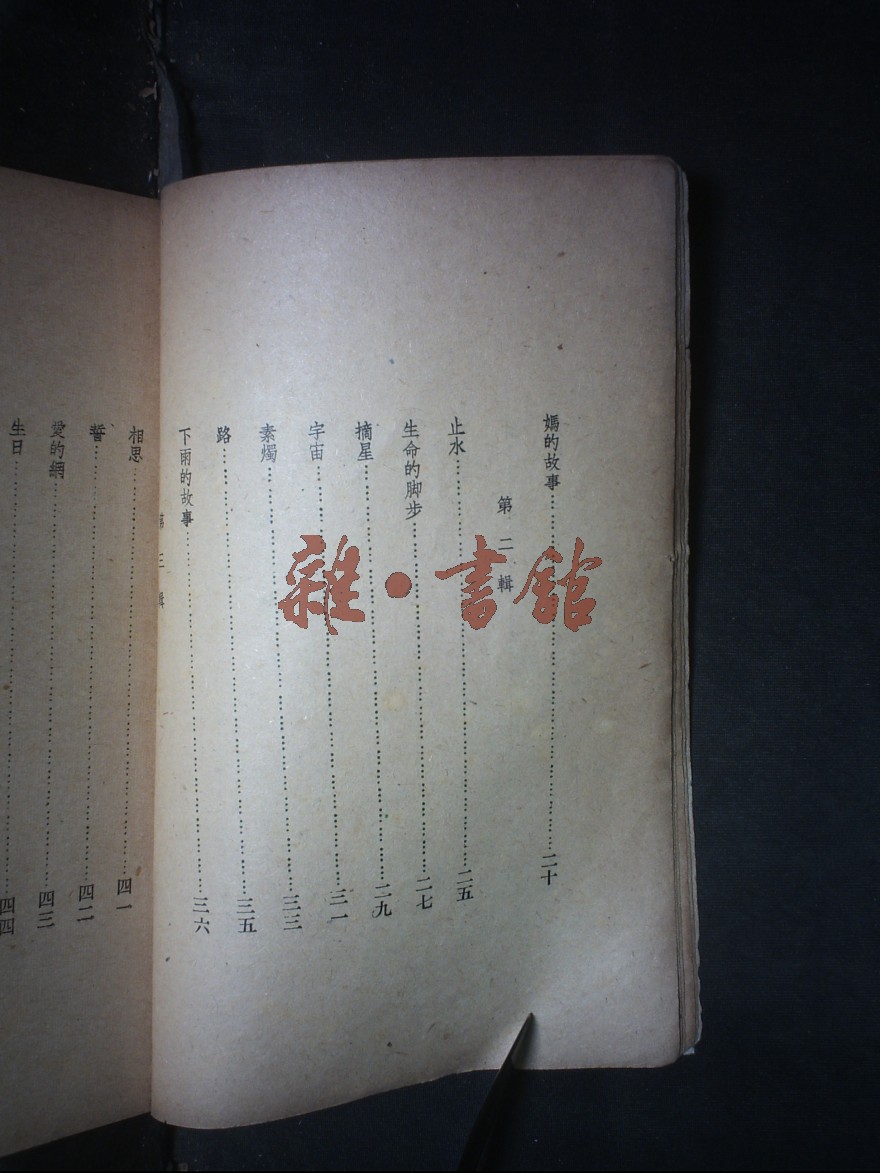 媽的故事……二十
第二輯
止水……二五
生命的脚步……二七
摘星……二九
宇宙……三一
素燭……三三
路……三五
下雨的故事……三六
第三輯
相思……四一
誓……四二
愛的網……四三
生日……四四
雜•書館